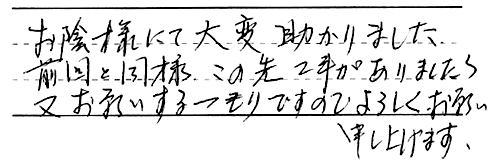 お陰様にて大変助かりました、
前回と同様、この先工事がありましたら
又お願いするつもりですのでよろしくお願い
申し上げます、